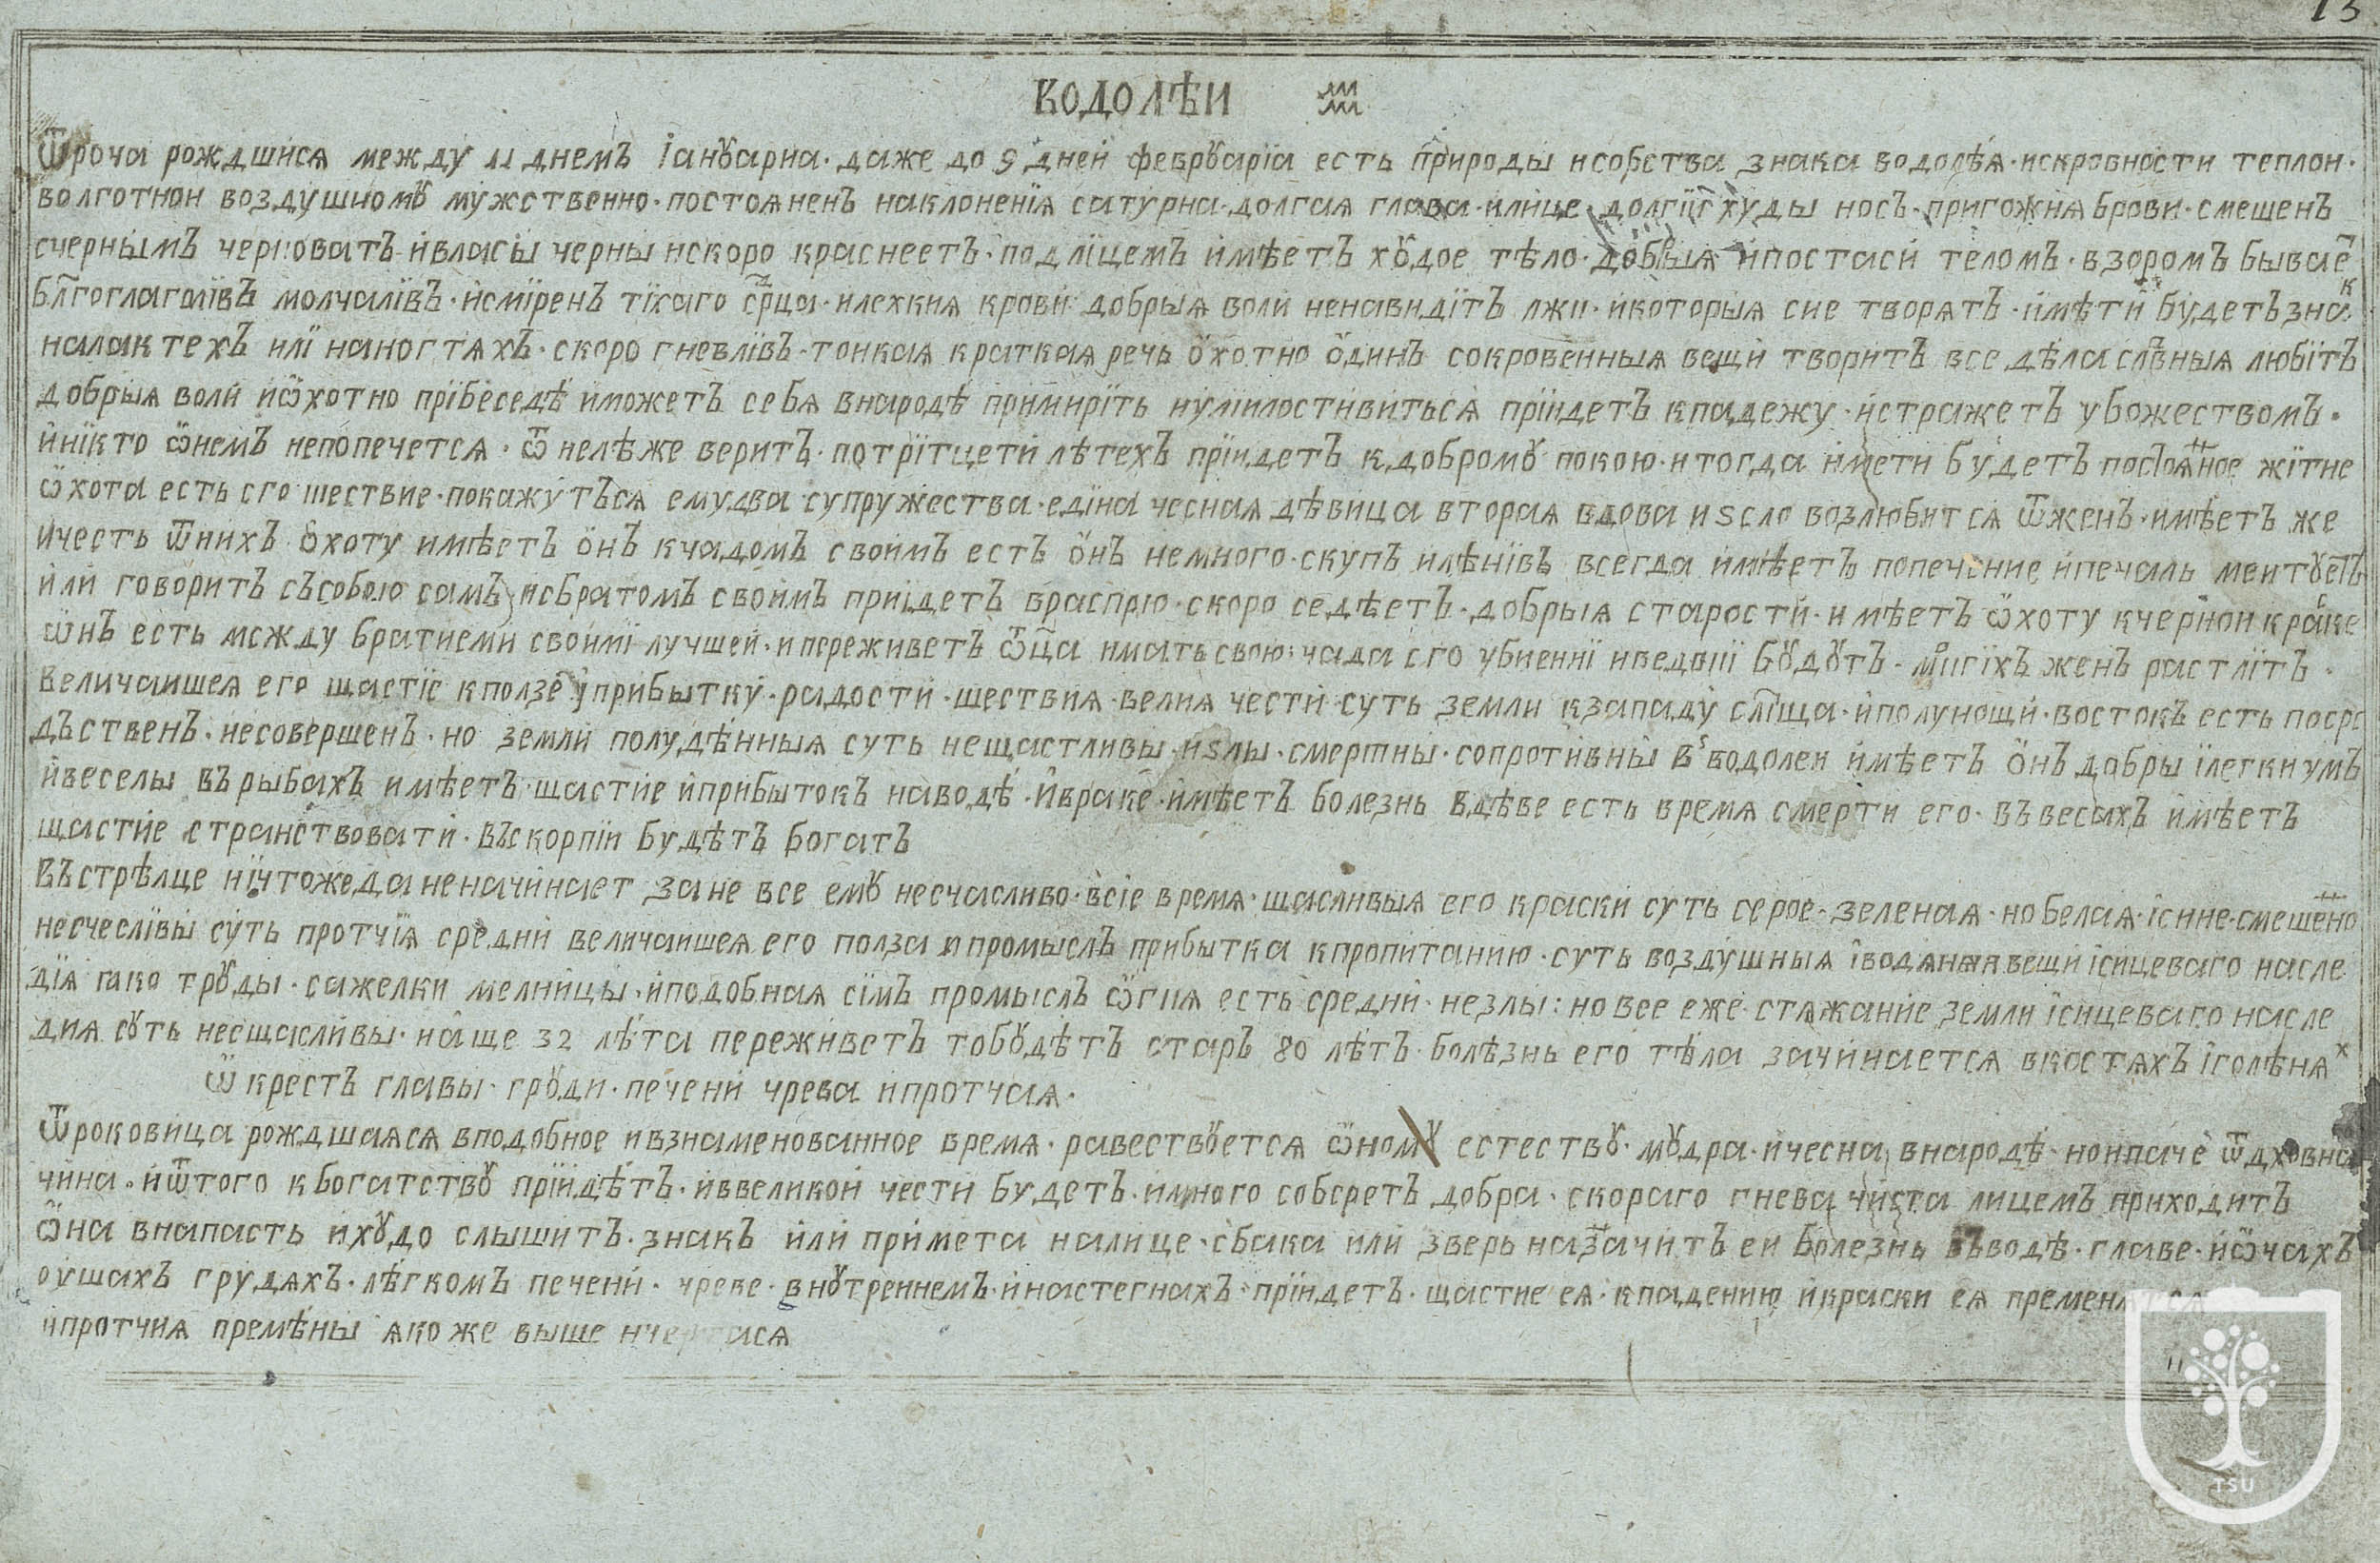 13
ВОДОЛѢИ ♒
Ѿроча рождшийся между 11 днемъ Іанꙋариа · даже до 9 дней феврꙋаріа есть природы исобства знака водолѣѧ · искровности теплои ·
волготнои воздушномꙋ мужственно · постоѧненъ наклоненїѧ сатурна · долгаѧ глава · илице долгїи худы носъ · пригожиѧ брови · смешенъ
счернымъ черноватъ · ивласы черны искоро краснеетъ · подлицемъ имѣетъ хꙋдое тѣло · добрыѧ ипостаси теломъ · взоромъ бывает
блгоглаголївъ молчалївъ · исмїренъ тїхаго срца · илехкиѧ крови добрыѧ воли ненавидїтъ лжи · икоторыѧ сие творѧтъ · имѣти будетъ знак
налактехъ илї наногтѧхъ · скоро гневлївъ · тонкаѧ краткаѧ речь ѻхотно ѻдинъ сокровенныѧ вещи творитъ все дѣла слвныѧ любїтъ
добрыѧ воли иѡхотно прїбеседѣ иможетъ себѧ внародѣ примирїть иумїлостивитьсѧ прїидетъ кпадежу · истражетъ убожествомъ ·
инїкто ѡнемъ непопечетсѧ · ѿ нелѣже веритъ · потрїтцети лѣтехъ прїидетъ к добромꙋ покою · итогда имети будетъ постоѧнное жїтие
ѡхота есть его шествие · покажутъсѧ ему два супружества · едїна чеснаѧ дѣвица втораѧ вдова иѕело возлюбитсѧ ѿженъ · имѣетъ же
ичесть ѿнихъ ѻхоту имѣетъ ѻнъ кчадомъ своимъ есть ѻнъ немного · скупъ илѣнївъ всегда имѣетъ попечение ипечаль ментꙋетъ
или говоритъ съсобою самъ исбратомъ своимъ приидетъ враспрю · скоро седѣетъ · добрыѧ старости · имѣетъ ѡхоту кчернои краске
ѡнъ есть между братиеми своимї лучшей · ипереживетъ ѿца имать свою · чада его убиеннї · бꙋдꙋтъ · многїхъ женъ растлїтъ ·
величаишеѧ его щастїе кползе иприбытку · радости · шествиѧ · велиѧ чести суть земли кзападу слнца · иполунощи · востокъ есть посре
дъственъ · несовершенъ · но земли полудѣнныѧ суть нещастливы · иѕлы · смертны · сопротивны въ водолеи имѣетъ ѻнъ добры їлегки умъ
ивеселы въ рыбахъ имѣетъ щастие иприбытокъ наводѣ · ивраке · имѣетъ болезнь вдѣве есть времѧ смерти его · въвесахъ имѣетъ
щастие странствовати · въскорпїи будѣтъ богатъ
Въстрѣлце ничтоже да неначинает зане все емꙋ несчасливо · всїе времѧ · щасливыѧ его краски суть серое · зеленаѧ · но белаѧ · їсине · смешенно
несчеслївы суть протчїѧ средни величаишеѧ его ползa ипромыслъ прибытка кпропитанию · суть воздушныѧ їводѧныѧ вещи їсицеваго насле
дїѧ ꙗко трꙋды · сажелки мелницы · иподобнаѧ сїмъ промыслъ ѡгнѧ есть средни · незлы : но все еже стѧжание земли їсицеваго насле
диѧ сꙋть несщасливы · наще 32 лѣта переживетъ тобꙋдѣтъ старъ 80 лѣтъ · болѣзнь его тѣла зачинаетсѧ вкостѧхъ їголѣнѧх
ѡкрестъ главы · грꙋди · печени чрева ипротчаѧ ·
Ѿроковица рождшаѧсѧ вподобное ивзнаменованное времѧ · равествꙋетсѧ ѡномꙋ естествꙋ · мꙋдра · ичесна внародѣ · ноипаче ѿдховна
чина · иѿтого к богатствꙋ прїидѣтъ · иввеликои чести будетъ · имного соберетъ добра · скораго гнева чиста лицемъ приходитъ
ѡна внапасть ихꙋдо слышитъ · знакъ или примета налице · сбака или зверь назначитъ еи болезнь въводѣ · главе · иѡчахъ
оушахъ грудѧхъ · лѣгкомъ печени · чреве · внꙋтреннемъ · инастегнахъ · прїидетъ · щастие еѧ · кпадению икраски еѧ пременѧтсѧ
ипротчиѧ премѣны ѧкоже выше
TSU